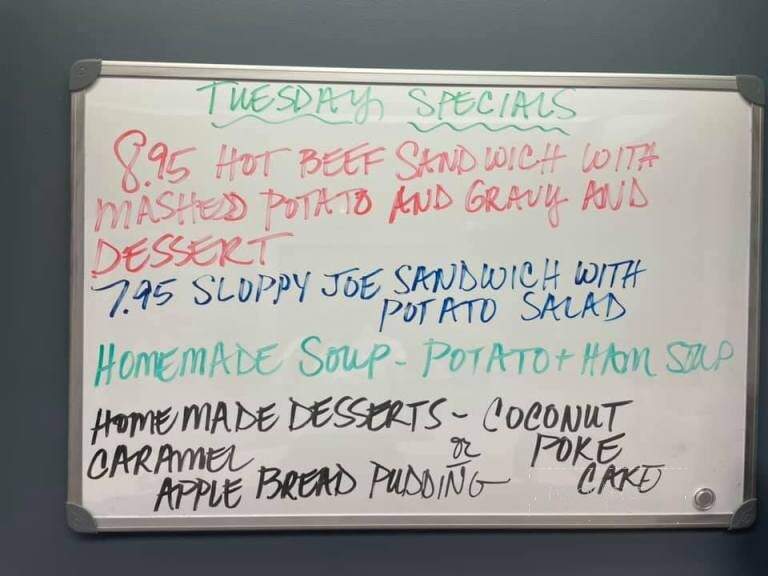 TUESDAY SPECIALS
8.95 HOT BEEF SANDWICH WITH
MASHED POTATO AND GRAVY AND
DESSERT
7.95 SLOPPY JOE SANDWICH WITH
POTATO SALAD
HOMEMADE SOUP - POTATO + HAM SOUP
HOMEMADE DESSERTS - COCONUT
CARAMEL or POKE
APPLE BREAD PUDDING CAKE